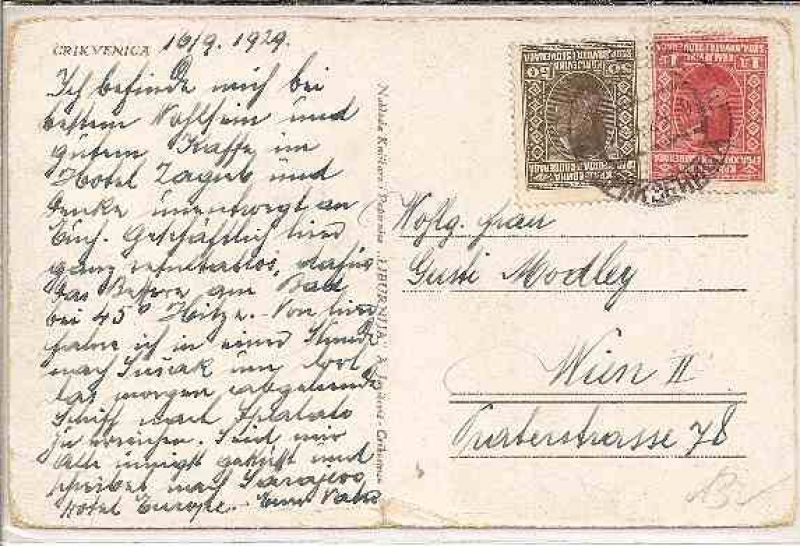 CRIKVENICA 16/9. 1929.
Ich befinde mich bei
bestem Wohlsein und
gutem Kaffe im
Hotel Zagreb und
denke unentwegt an
Euch. Geschäftlich hier
ganz resultatlos, dafür
das Bessere am Bad
bei 45° Hitze. Von hier
fahre ich in einer Stunde
nach Sušak um dort
das morgen abgehende
Schiff nach Spalato
zu erreichen. Seid mir
Alle innigst geküsst und
schreibet nach Sarajevo,
Hotel Europe. Euer Vater
Naklada Knjižare i Papirnice „LIBURNIJA"
Crikvenica
50
1
Wohlg. Frau
Gusti Modley
Wien II
Praterstrasse 78